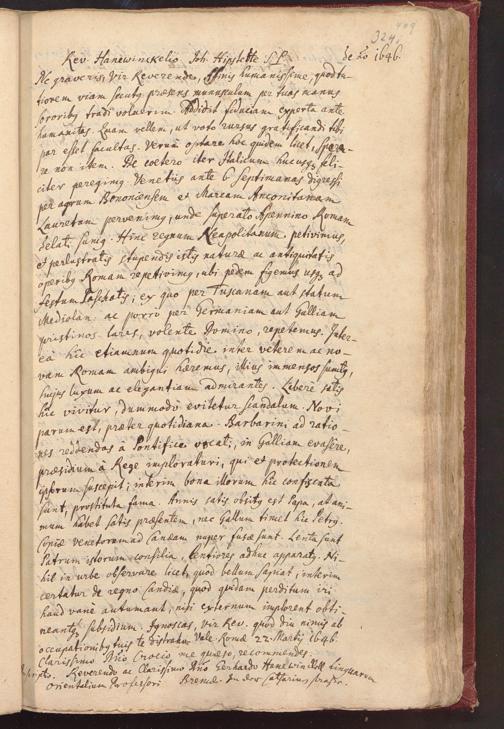 409
324.
Rev. Hanewinckelio Joh. Hipstette S. P.
de ao 1646.
Ne graveris, Vir Reverende, humanissime, quod tu-
tiorem viam secuty præsens munusculum per tuas manus
sorority tradi voluerim. Dedidit fiduciam experta ante
humanitas. Quam vellem, ut voto rursus gratificandi tibi
par esset facultas. Verum optare hoc quidem licet, spera-
re non item. De coetero iter Italicum hucusq; feli-
citer peregimy. Venetiis ante 6 septimanas digressi
per agrum Bononiensem et Marcam Anconitanam
Lauretum pervenimy; unde superato Apennino Romam
delati sumy. Hinc regnum Neapolitanum petivimus,
et perlustratis stupendis istis naturæ ac antiquitatis
operiby Romam repetivimy, ubi pedem figemus usq; ad
festum Paschatis; ex quo per Tuscanam aut statum
Mediolan: ac porro per Germaniam aut Galliam
pristinos lares, volente Domino, repetemus. Inter-
ea hic etiamnum quotidie inter veterem ac no-
vam Romam ambigui heremus, illius immensos sumty,
hujus luxum ac elegantiam admirantes. Libere satis
hic vivitur, dummodo evitetur scandalum. Novi
parum est, præter quotidiana. Barbarini ad ratio-
nes reddendas à Pontifice vocati, in Galliam evasere,
præsidium à Rege imploraturi, qui et protectionem
ipsorum suscepit; interim bona illorum hic confiscata
sunt, prostituta fama. Annis satis obsity est Papa, at ani-
mum habet satis præsentem, nec Gallum timet hic Petry.
Copiæ Venetorum ad Candiam nuper fusæ sunt. Lenta sunt
Patrum istorum consilia, lentiores adhuc apparaty. Ni-
hil in urbe observare licet, quod bellum sapiat, interim
certatur de regno Candiæ, quod quidam perditum iri
haud vane autumant, nisi externum implorent obti-
neantq; subsidium. Ignoscas, Vir Rev. quod diu nimis ab
occupationiby tuis te distraham. Vale Romæ 22. Martii 1646.
Clarissimo Dno Crocio me quæso, recommendes.
Reverendo ac Clarissimo Dno Gerhardo Hanewinckell Linguarum
orientalium Professori Bremæ In der